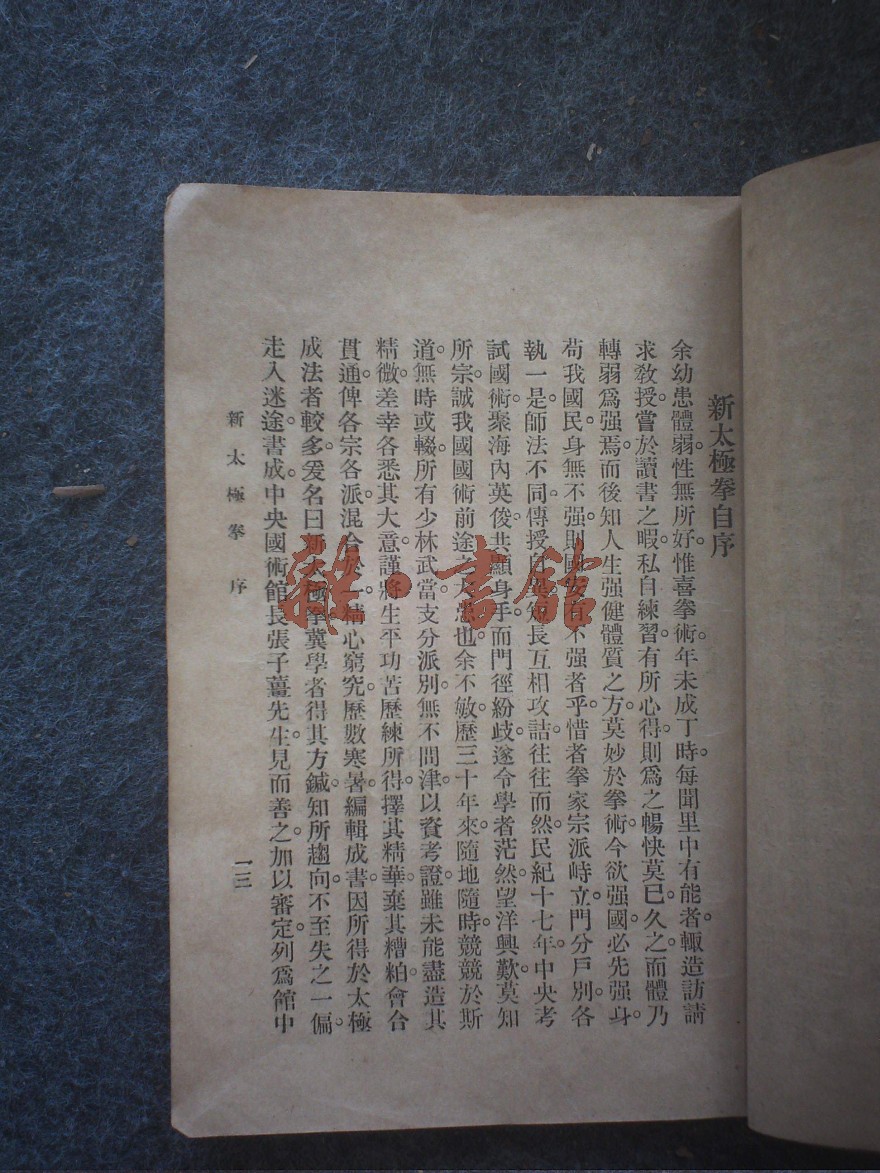 新太極拳自序
余幼患體弱。性無所好。惟喜拳術。年未成丁時。每聞里中有能者。輙造訪請
求教授。嘗於讀書之暇。私自練習。有所心得。則爲之暢快莫巳。久之。而體乃
轉弱爲强。焉而後知人生强健體質之方。莫妙於拳術。今欲强國。必先强身。
苟我國民身無不强。則國安有不强者乎。惜者拳家宗派峙立。門分戶別。各
執一是。師法不同。傳授自異。短長互相攻詰。往往而然。民紀十七年。中央考
試國術。聚海內英俊。共顯身手。而門徑紛歧。遂令學者茫然。望洋興歎。莫知
所宗。誠我國國術前途之大患也。余不敏。歷三十年來。隨地隨時。競競於斯
道。無時或輟。所有少林武當。支分派別。無不問津。以資考證。雖未能盡造其
精微。差幸各悉其大意。謹將生平功苦歷練所得。擇其精華。棄其糟粕。會合
貫通。俾各宗各派。混合於一。精心窮究。歷數寒暑。編輯成書。因所得於太極
成法者較多。爰名曰新太極拳。冀學者得其方鍼。知所趨向。不至失之一偏。
走入迷途。書成。中央國術館長張子薑先生。見而善之。加以審定。列爲館中
新太極拳 序
一三
雜·書館